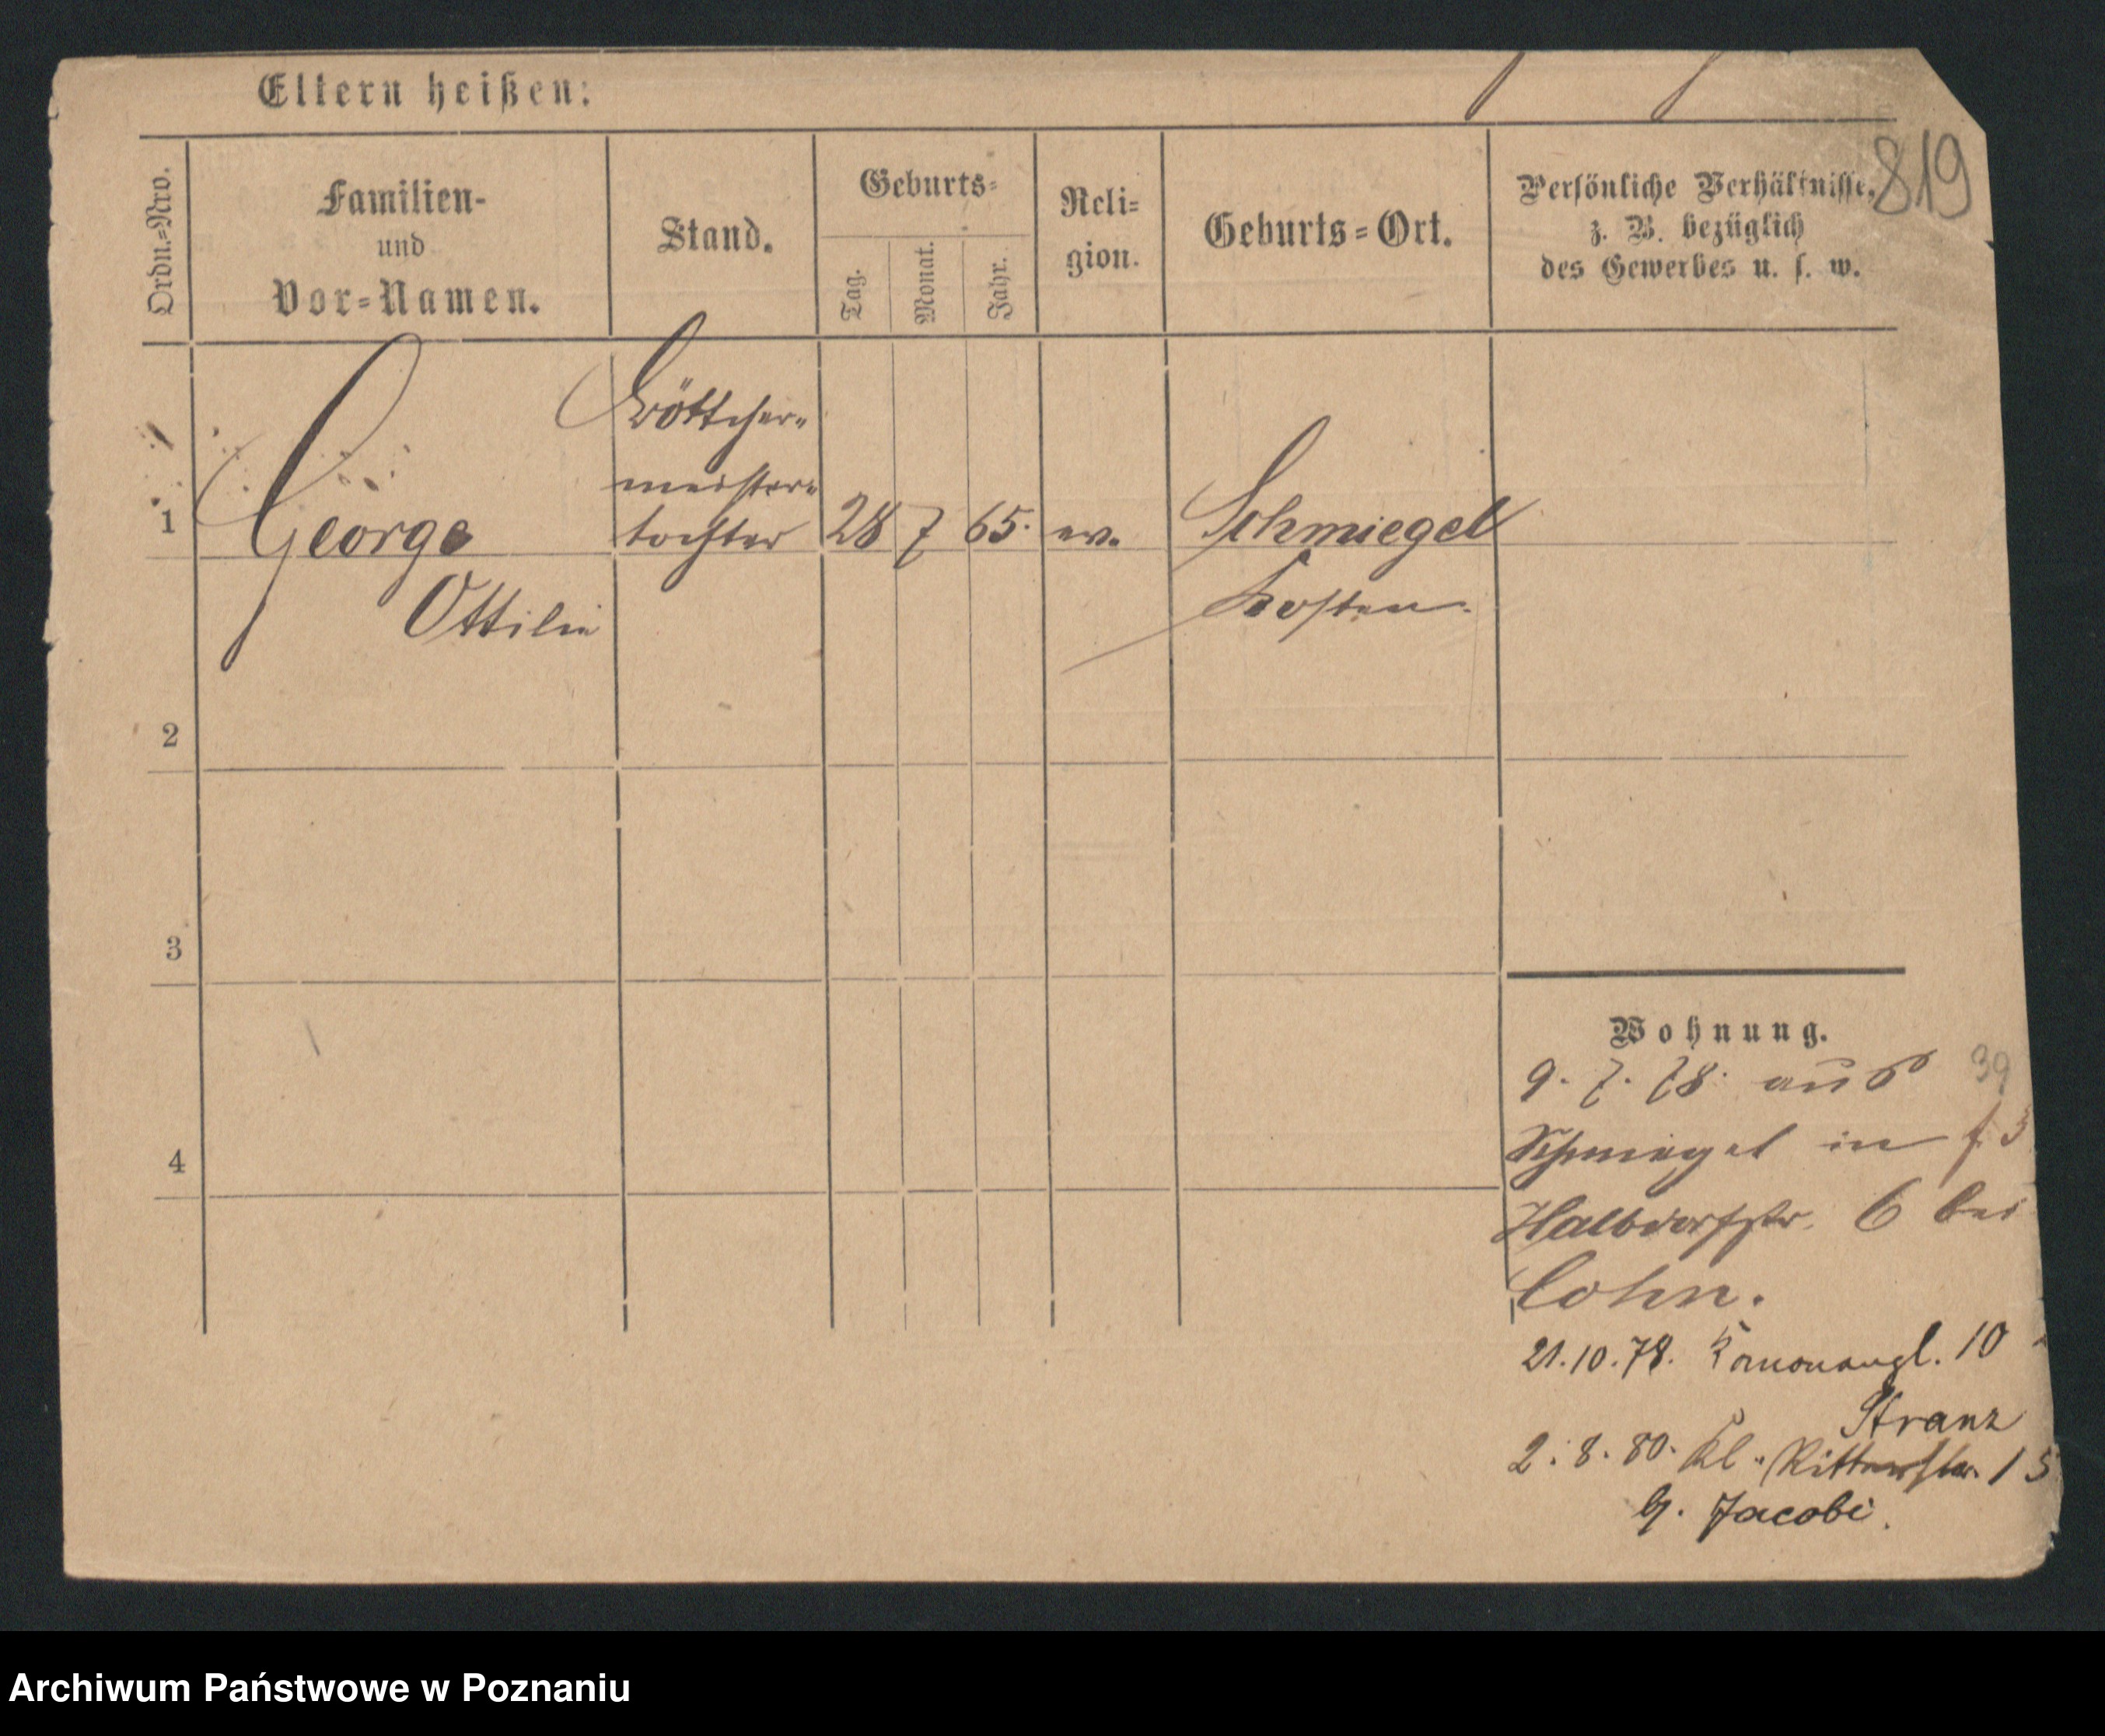 Eltern heißen:
819
Ordn.-Nro.
Familien-
und
Vor-Namen.
Stand.
Geburts-
Tag.
Monat.
Jahr.
Reli-
gion.
Geburts-Ort.
Persönliche Verhältnisse,
z. B. bezüglich
des Gewerbes u. s. w.
Böttcher-
meister-
1 George tochter 28 7 65. ev. Schmiegel
Ottilie Kosten.
2
3
4
Wohnung.
9. 7. 78. aus 39
Schmiegel in
Halbdorfstr. 6 bei
Cohn.
21.10.78. Kanonenpl. 10
Stranz
2.8.80. Kl. Ritterstr. 15
b. Jacobi.
Archiwum Państwowe w Poznaniu